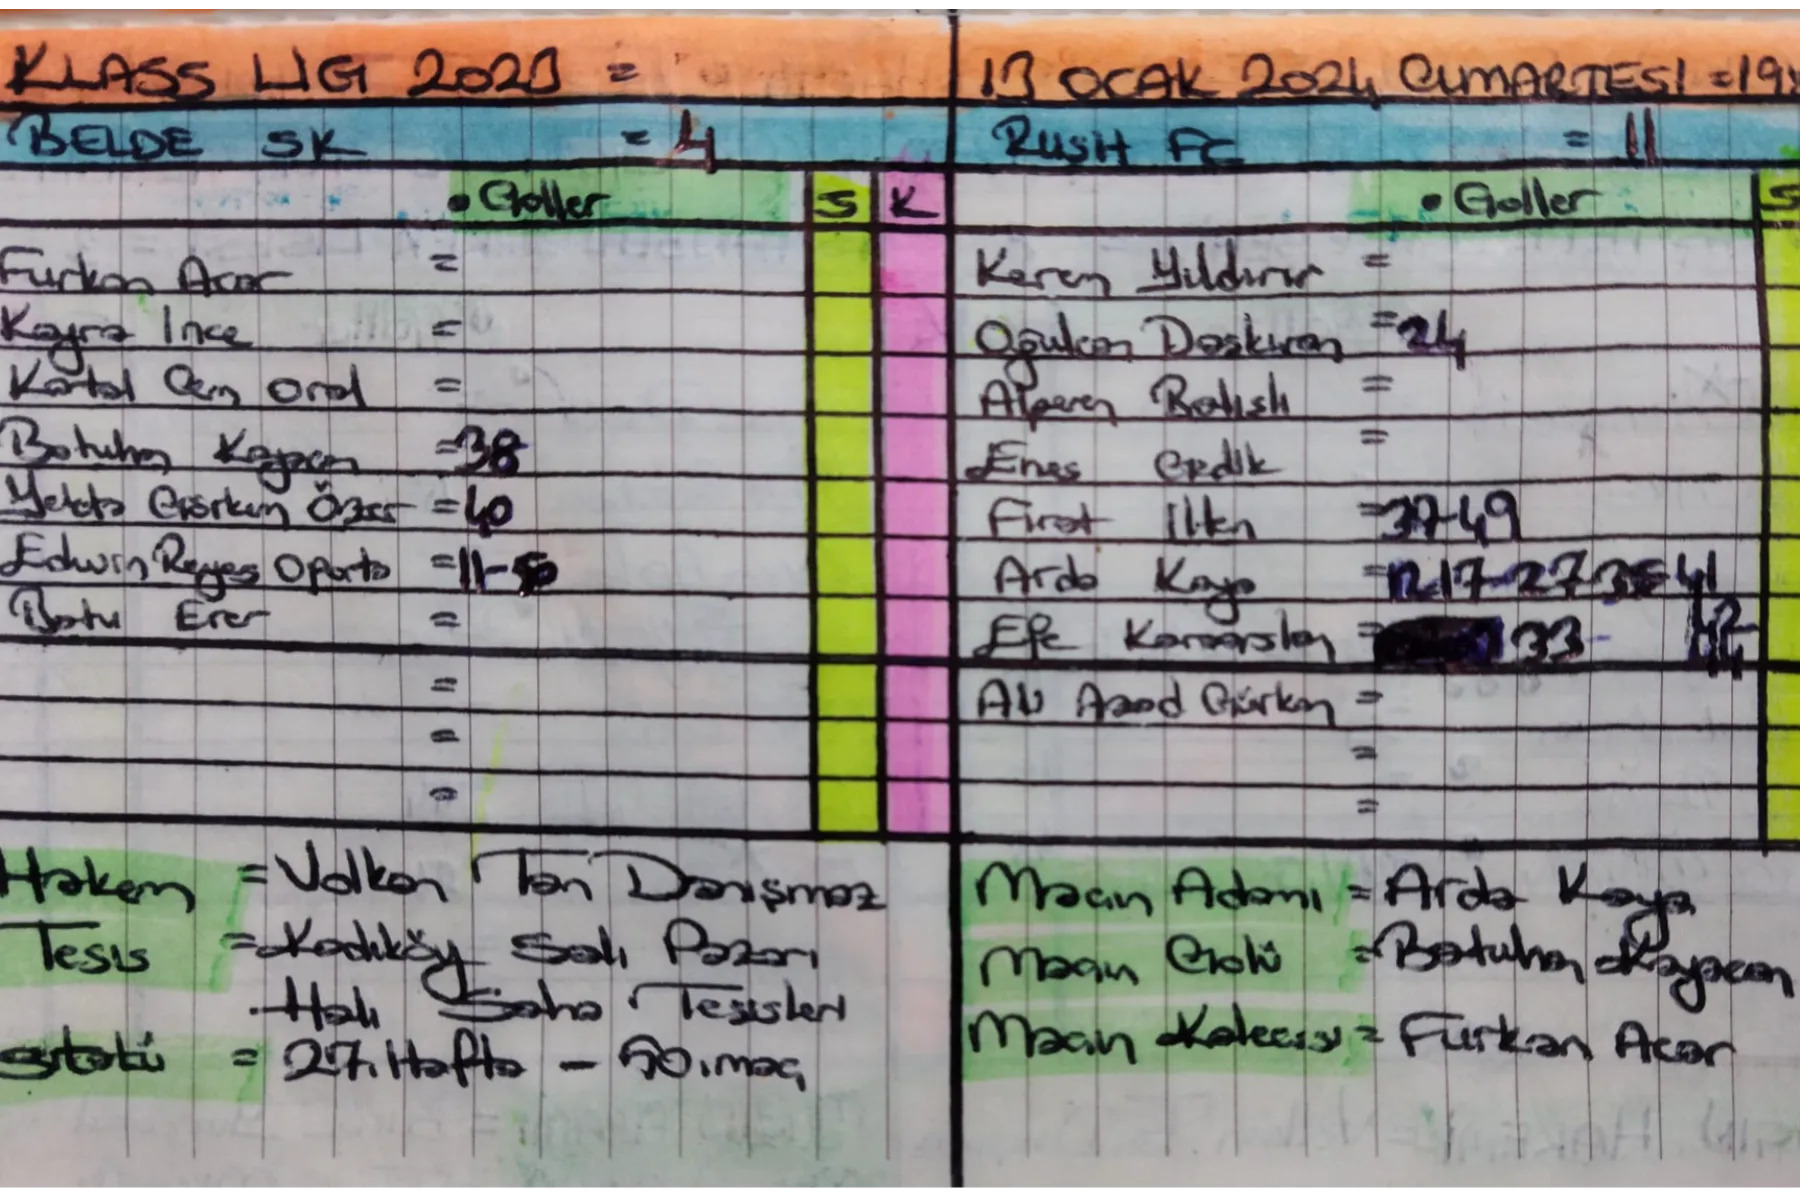 KLASS LIG 2023 =
BELDE SK = 4
• Goller S K
Furkan Acar =
Kayra Ince =
Kartal Cem Oral =
Batuhan Kayacan =38
Yekta Görkem Özer =40
Edwin Reyes Oporto =11-50
Batu Erer =
=
=
=
Hakem =Volkan Tan Danışmaz
Tesis =Kadıköy Salı Pazarı
Halı Saha Tesisleri
Statü = 27.Hafta - 50.maç
13 OCAK 2024 CUMARTESI =19
RUSH FC = 11
• Goller S
Kerem Yıldırır =
Oğulcan Daskıran =24
Alperen Batışlı =
Enes Gedik =
Firat Ilkn =37-49
Arda Kaya =12-17-27-35-41
Efe Karaarslan = 33- 42
44
Ali Azad Gürkan =
=
=
Maçın Adamı = Arda Kaya
Maçın Golü =Batuhan Kayacan
Maçın Kalecisi = Furkan Acar